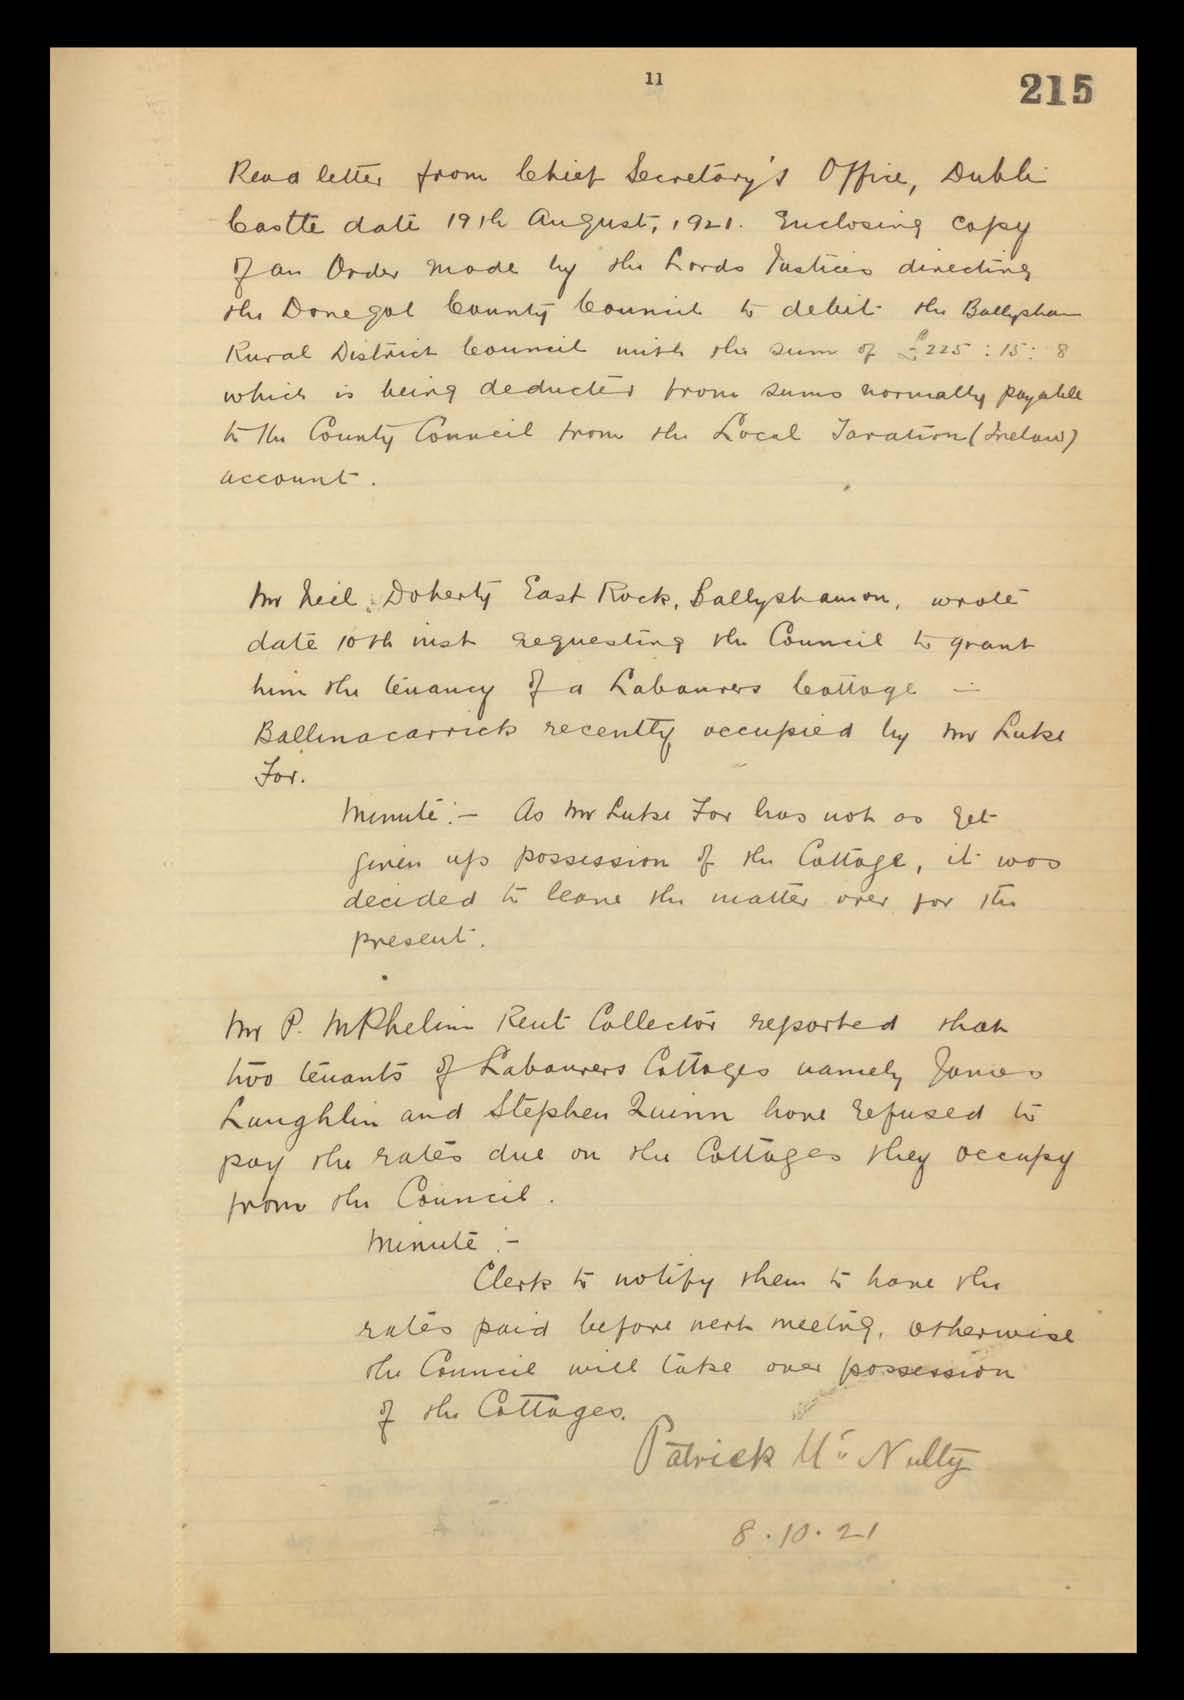 11
215
Read letter from Chief Secretary's Office, Dublin
Castle date 19th August, 1921. Enclosing copy
of an Order made by the Lords Justices directing
the Donegal County Council to debit the Ballyshan
Rural District Council with the sum of £225 : 15 : 8
which is being deducted from sums normally payable
to the County Council from the Local Taxation (Ireland)
account.
Mr Neil Doherty East Rock, Ballyshannon, wrote
date 10th inst requesting the Council to grant
him the tenancy of a Labourers Cottage in
Ballinacarrick recently occupied by Mr Luke
Fox.
Minute :- As Mr Luke Fox has not as yet
given up possession of the Cottage, it was
decided to leave the matter over for the
present.
Mr P. McPhelim Rent Collector reported that
two tenants of Labourers Cottages namely James
Laughlin and Stephen Quinn have refused to
pay the rates due on the Cottages they occupy
from the Council.
Minute :-
Clerk to notify them to have the
rates paid before next meeting, otherwise
the Council will take over possession
of the Cottages.
Patrick Mc Nulty
8.10.21